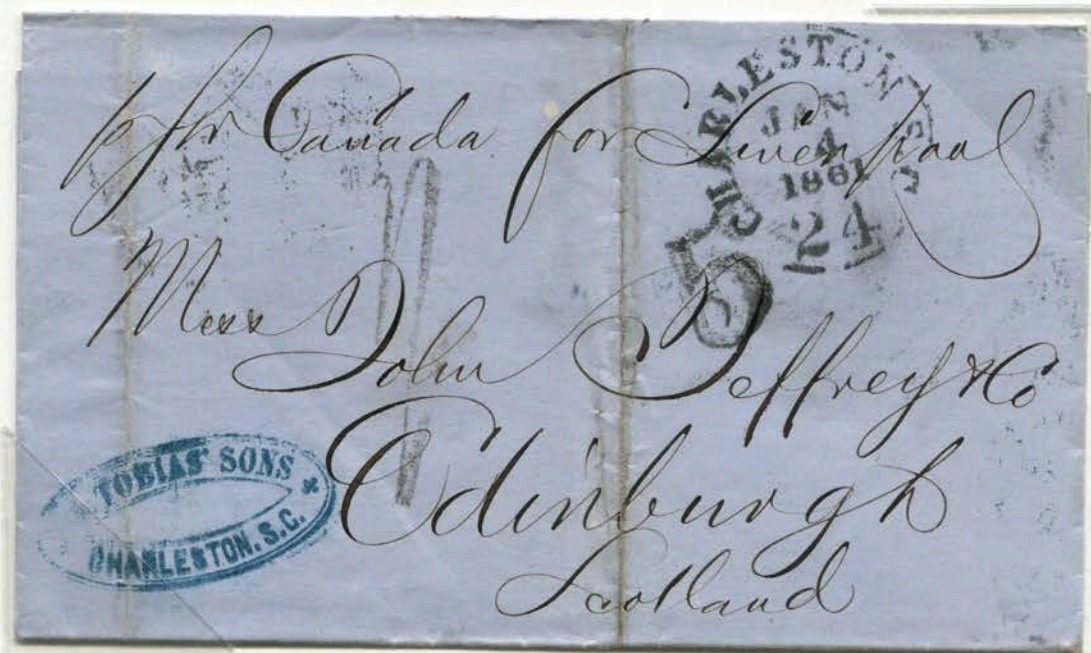 p Str Canada for Liverpool
CHARLESTON S.C.
JAN
4
1861
24
5
Mess John Jeffrey & Co
Edinburgh
Scotland
TOBIAS' SONS
CHARLESTON, S.C.